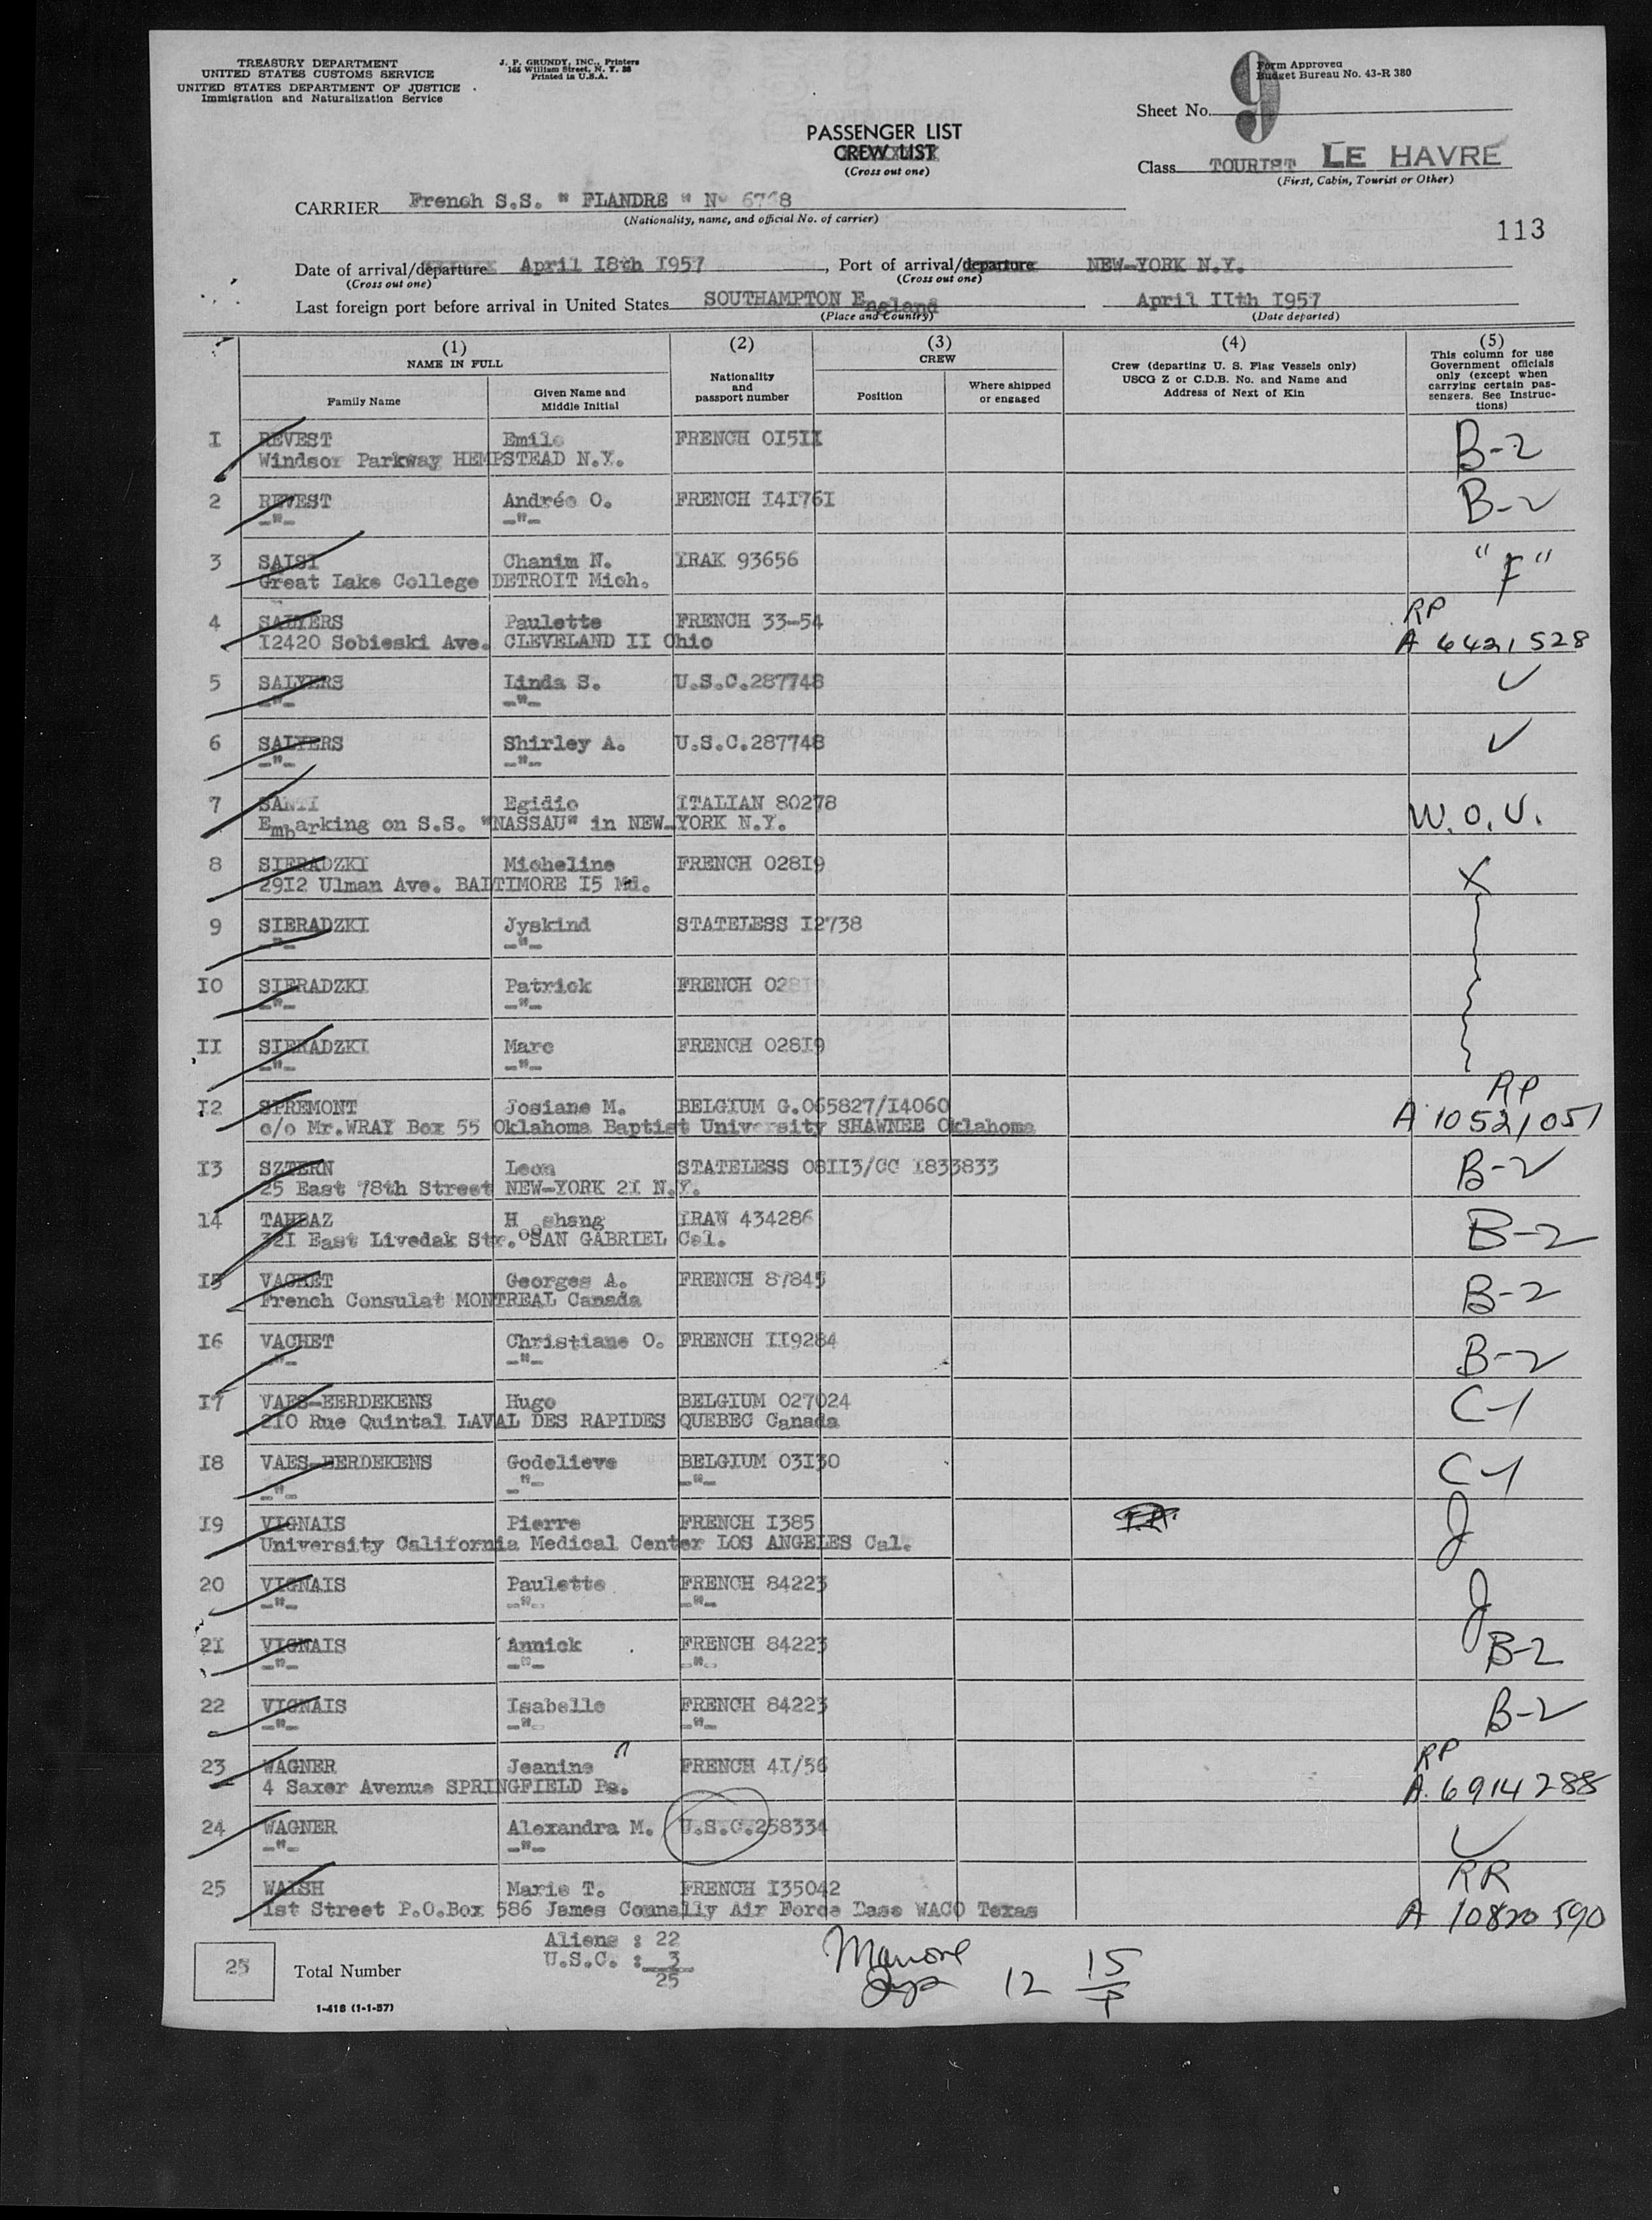 TREASURY DEPARTMENT
UNITED STATES CUSTOMS SERVICE
UNITED STATES DEPARTMENT OF JUSTICE
Immigration and Naturalization Service
J. P. GRUNDY, INC., Printers
165 William Street, N. Y. 38
Printed in U.S.A.
Form Approved
Budget Bureau No. 43-R 380
Sheet No. 9
PASSENGER LIST
CREW LIST
(Cross out one)
Class TOURIST LE HAVRE
(First, Cabin, Tourist or Other)
CARRIER French S.S. " FLANDRE " N° 6768
(Nationality, name, and official No. of carrier)
113
Date of arrival/departure April I8th I957, Port of arrival/departure NEW-YORK N.Y.
(Cross out one) (Cross out one)
Last foreign port before arrival in United States SOUTHAMPTON England April IIth I957
(Place and Country) (Date departed)
(1) NAME IN FULL
Family Name
Given Name and Middle Initial
(2) Nationality and passport number
(3) CREW
Position
Where shipped or engaged
(4) Crew (departing U. S. Flag Vessels only) USCG Z or C.D.B. No. and Name and Address of Next of Kin
(5) This column for use Government officials only (except when carrying certain passengers. See Instructions)
I REVEST Emile FRENCH OI5II B-2
Windsor Parkway HEMPSTEAD N.Y.
2 REVEST Andrée O. FRENCH I4I76I B-2
-"- -"-
3 SAISI Chanim N. IRAK 93656 "F"
Great Lake College DETROIT Mich.
4 SALYERS Paulette FRENCH 33-54 RP
I2420 Sobieski Ave. CLEVELAND II Ohio A 6421528
5 SALYERS Linda S. U.S.C.287748 ✓
-"- -"-
6 SALYERS Shirley A. U.S.C.287748 ✓
-"- -"-
7 SANTI Egidio ITALIAN 80278 W.O.V.
Embarking on S.S. "NASSAU" in NEW-YORK N.Y.
8 SIERADZKI Micheline FRENCH 028I9 X
29I2 Ulman Ave. BALTIMORE I5 Md.
9 SIERADZKI Jyskind STATELESS I2738
-"- -"-
IO SIERADZKI Patrick FRENCH 028I9
-"- -"-
II SIERADZKI Marc FRENCH 028I9
-"- -"-
I2 SPREMONT Josiane M. BELGIUM G.065827/I4060 RP
c/o Mr.WRAY Box 55 Oklahoma Baptist University SHAWNEE Oklahoma A 10521051
I3 SZTERN Leon STATELESS 08II3/CC I833833 B-2
25 East 78th Street NEW-YORK 2I N.Y.
14 TAHBAZ Hooshang IRAN 434286 B-2
32I East Livedak Str. SAN GABRIEL Cal.
I5 VACHET Georges A. FRENCH 87845 B-2
French Consulat MONTREAL Canada
I6 VACHET Christiane O. FRENCH II9284 B-2
-"- -"-
I7 VAES-EERDEKENS Hugo BELGIUM 027024 C-1
2IO Rue Quintal LAVAL DES RAPIDES QUEBEC Canada
I8 VAES-EERDEKENS Godelieve BELGIUM 03I30 C-1
-"- -"- -"-
I9 VIGNAIS Pierre FRENCH I385 J
University California Medical Center LOS ANGELES Cal.
20 VIGNAIS Paulette FRENCH 84223 J
-"- -"- -"-
2I VIGNAIS Annick FRENCH 84223 B-2
-"- -"- -"-
22 VIGNAIS Isabelle FRENCH 84223 B-2
-"- -"- -"-
23 WAGNER Jeanine FRENCH 4I/56 RP
4 Saxer Avenue SPRINGFIELD Pa. A. 6914288
24 WAGNER Alexandra M. U.S.C.258334 ✓
-"- -"-
25 WALSH Marie T. FRENCH I35042 RR
1st Street P.O.Box 586 James Connally Air Force Base WACO Texas A 10820590
25 Total Number
Aliens : 22
U.S.C. : 3
25
12 15
1-418 (1-1-57)